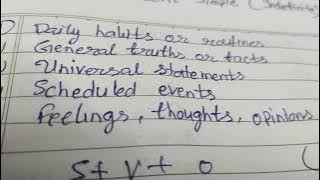 Simple (
Daily habits or routines
General truths or facts
Universal statements
Scheduled events
feelings, thoughts, opinions
S + V + O (